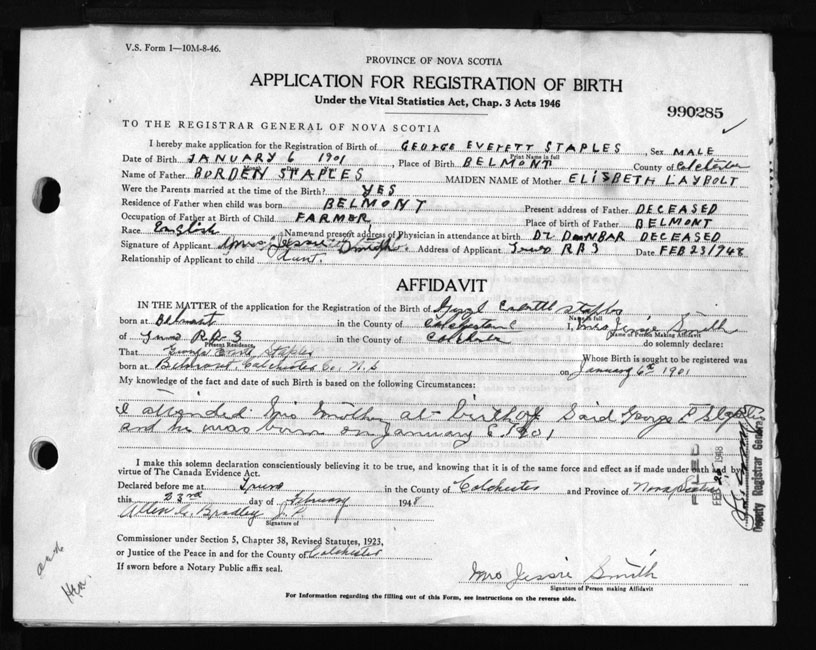 V.S. Form 1—10M-8-46.
PROVINCE OF NOVA SCOTIA
APPLICATION FOR REGISTRATION OF BIRTH
Under the Vital Statistics Act, Chap. 3 Acts 1946
990285
TO THE REGISTRAR GENERAL OF NOVA SCOTIA
I hereby make application for the Registration of Birth of GEORGE EVERETT STAPLES, Sex MALE
Print Name in full
Date of Birth JANUARY 6 1901, Place of Birth BELMONT County of Colchester
Name of Father BORDEN STAPLES MAIDEN NAME of Mother ELISBETH LAYBOLT
Were the Parents married at the time of the Birth? YES
Residence of Father when child was born BELMONT Present address of Father DECEASED
Occupation of Father at Birth of Child FARMER Place of birth of Father BELMONT
Race English Name and present address of Physician in attendance at birth Dr DUNBAR DECEASED
Signature of Applicant Mrs Jessie Smith Address of Applicant Truro RR3 Date FEB 23 1948
Relationship of Applicant to child Aunt
AFFIDAVIT
IN THE MATTER of the application for the Registration of the Birth of Staples
Name in full
born at Belmont in the County of Colchester I, Mrs Jessie Smith
Name of Person Making Affidavit
of Truro RR-3 in the County of Colchester do solemnly declare:
Present Residence
That George Staples Whose Birth is sought to be registered was
born at Belmont, Colchester Co. N.S on January 6th 1901
My knowledge of the fact and date of such Birth is based on the following Circumstances:
I attended his mother at birth of said George E Staples
and he was born on January 6 1901
I make this solemn declaration conscientiously believing it to be true, and knowing that it is of the same force and effect as if made under oath and by
virtue of The Canada Evidence Act.
Declared before me at Truro in the County of Colchester and Province of Nova Scotia
this 23rd day of February 1948
Allen G. Bradley J.P.
Signature of
Commissioner under Section 5, Chapter 38, Revised Statutes, 1923,
or Justice of the Peace in and for the County of Colchester
If sworn before a Notary Public affix seal.
Mrs Jessie Smith
Signature of Person making Affidavit
For Information regarding the filling out of this Form, see instructions on the reverse side.
FILED
FEB 26 1948
Deputy Registrar General